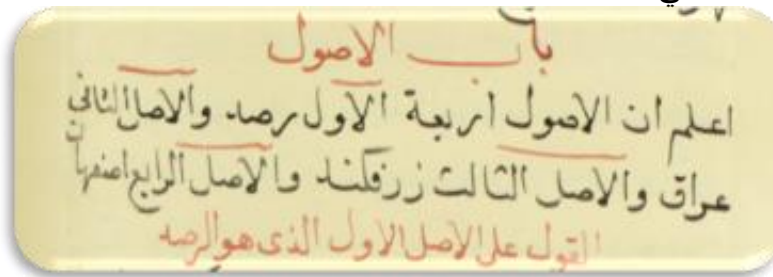 باب الاصول
اعلم ان الاصول اربعة الاول رصد والاصل الثانى
عراق والاصل الثالث زرفكند والاصل الرابع اصفهان
القول على الاصل الاول الذى هو الرصد